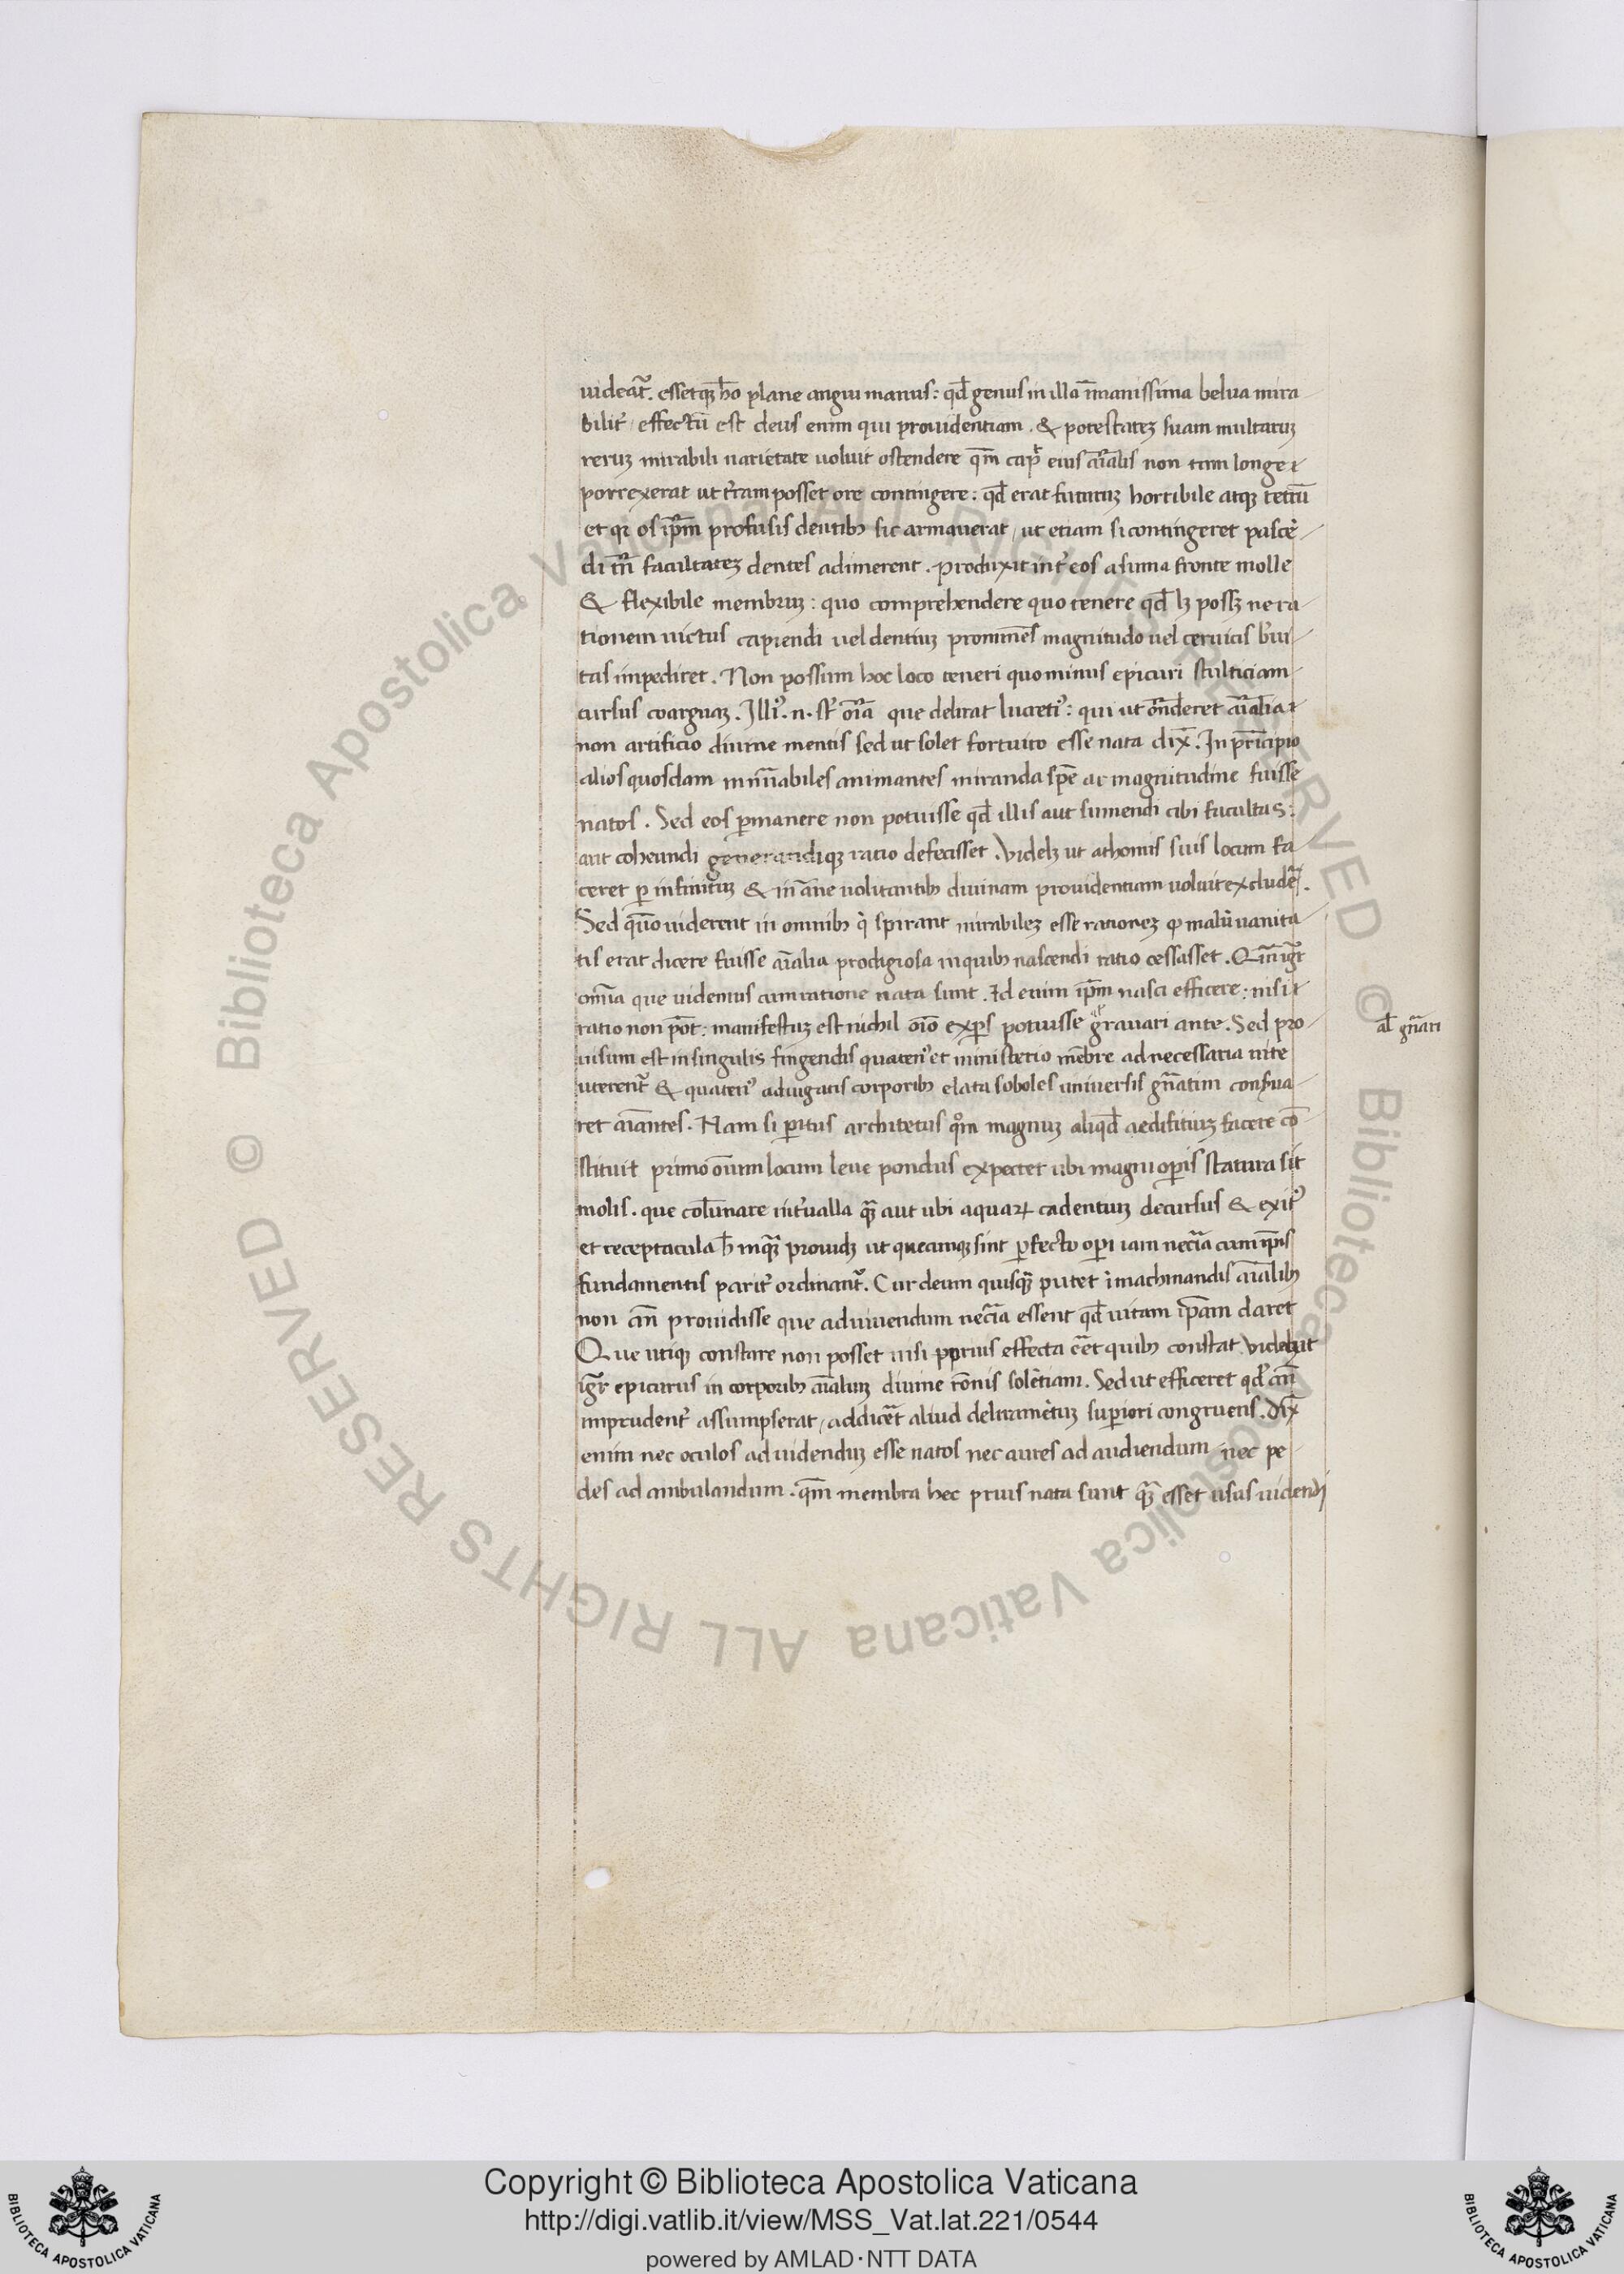 uideat᷑. essetqꝫ h̄o plane angui manus: qd̄ genus in illa īmanissima belua mira
bilit᷑ effectū est deus enim qui prouidentiam. & potestateꝫ suam multaruꝫ
reruꝫ mirabili uarietate uoluit ostendere qm̄ cap᷑ eius aīalis non tam longe
porrexerat ut t᷑ram posset ore contingere: qd̄ erat futuruꝫ horribile atqꝫ tetrū
et qꝛ os ip̄m profusis dentibꝫ sic armauerat, ut etiam si contingeret pascē
di tn̄ facultateꝫ dentes adimerent. Produxit int᷑ eos a sūma fronte molle
& flexibile membruꝫ: quo comprehendere quo tenere qd̄ lꝫ possꝫ ne ra
tionem uictus capiendi uel dentiuꝫ promīnes magnitudo uel ceruicis b᷑ui
tas impediret. Non possum hoc loco teneri quominus epicuri stulticiam
cursus coarguaꝫ. Illi᷒. n. st᷑ oīa que delirat lucreti᷒: qui ut on̄deret aīalia
non artificio diuine mentis sed ut solet fortuito esse nata dix̄. In prīcipio
alios quosdam innūabiles animantes miranda sp̄e ac magnitudine fuisse
natos. Sed eos ꝑmanere non potuisse qd̄ illis aut sumendi cibi facultas:
aut coheundi generandiqꝫ ratio defecisset. Videlꝫ ut athomis suis locum fa
ceret ꝑ infinituꝫ & ināne uolitantibꝫ diuinam prouidentiam uoluit excludē.
Sed qūo uiderent in omnibꝫ q̄ spirant mirabileꝫ esse rationeꝫ ꝙ malū uanita
tis erat dicere fuisse aīalia prodigiosa in quibꝫ nascendi ratio cessasset. Qm̄ igr̄
omīa que uidemus cum ratione nata sunt. Id enim ip̄m nasci efficere: nisi
ratio non pōt: manifestuꝫ est nichil oīo exꝑs potuisse grauari ante. Sed pro
al̄ gn̄ari
uisum est in singulis fingendis quaten᷒ et ministerio mēbre ad necessaria uite
uterent᷑ & quaten᷒ adiugatis corporibꝫ elata soboles uniuersis gn̄atim conẜua
ret aīantes. Nam si ꝑitus architetus qm̊ magnuꝫ aliqd̄ aedifitiuꝫ facere cō
stituit primo oīum locum leue pondus expectet ubi magni oꝑis statura sit
molis. que colūnare int᷑ualla quā aut ubi aquaꝝ cadentuꝫ decursus & exit᷒
et receptacula h̄ inquā prouidꝫ ut quecunqꝫ sint ꝑfecto oꝑi iam nec̄ia cum ip̄is
fundamentis parit᷑ ordinant᷑. Cur deum quisquā putet ī machinandis aīalibꝫ
non an̄ prouidisse que ad uiuendum nec̄ia essent qd̄ uitam ip̄am daret
Que utiqꝫ constare non posset nisi prius effecta eēt quibꝫ constat. Videbat
igr̄ epicurus in corporibꝫ aīaliuꝫ diuine rōnis solētiam. Sed ut efficeret qd̄ an̄
imprudent᷑ assumpserat, addic̄et aliud deliramētuꝫ suꝑiori congruens. dix̄
enim nec oculos ad uidenduꝫ esse natos nec aures ad audiendum nec pe
des ad ambulandum. qm̄ membra hec prius nata sunt quā esset usus uidendi
Copyright © Biblioteca Apostolica Vaticana
http://digi.vatlib.it/view/MSS_Vat.lat.221/0544
powered by AMLAD·NTT DATA
BIBLIOTECA APOSTOLICA VATICANA
BIBLIOTECA APOSTOLICA VATICANA
© Biblioteca Apostolica Vaticana ALL RIGHTS RESERVED
© Biblioteca Apostolica Vaticana ALL RIGHTS RESERVED